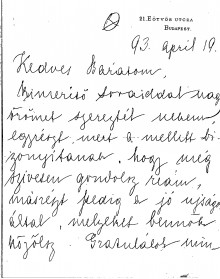 21. EÖTVÖS UTCZA
BUDAPEST.
93. april 19.
Kedves Barátom,
Ismerős soraiddal nagy
örömet szereztél nekem,
egyrészt mert a mellett bi-
zonyitanak, hogy még
szivesen gondolsz reám,
másrészt pedig a jó ujságok
által, melyeket bennök
közölsz. Gratulálok